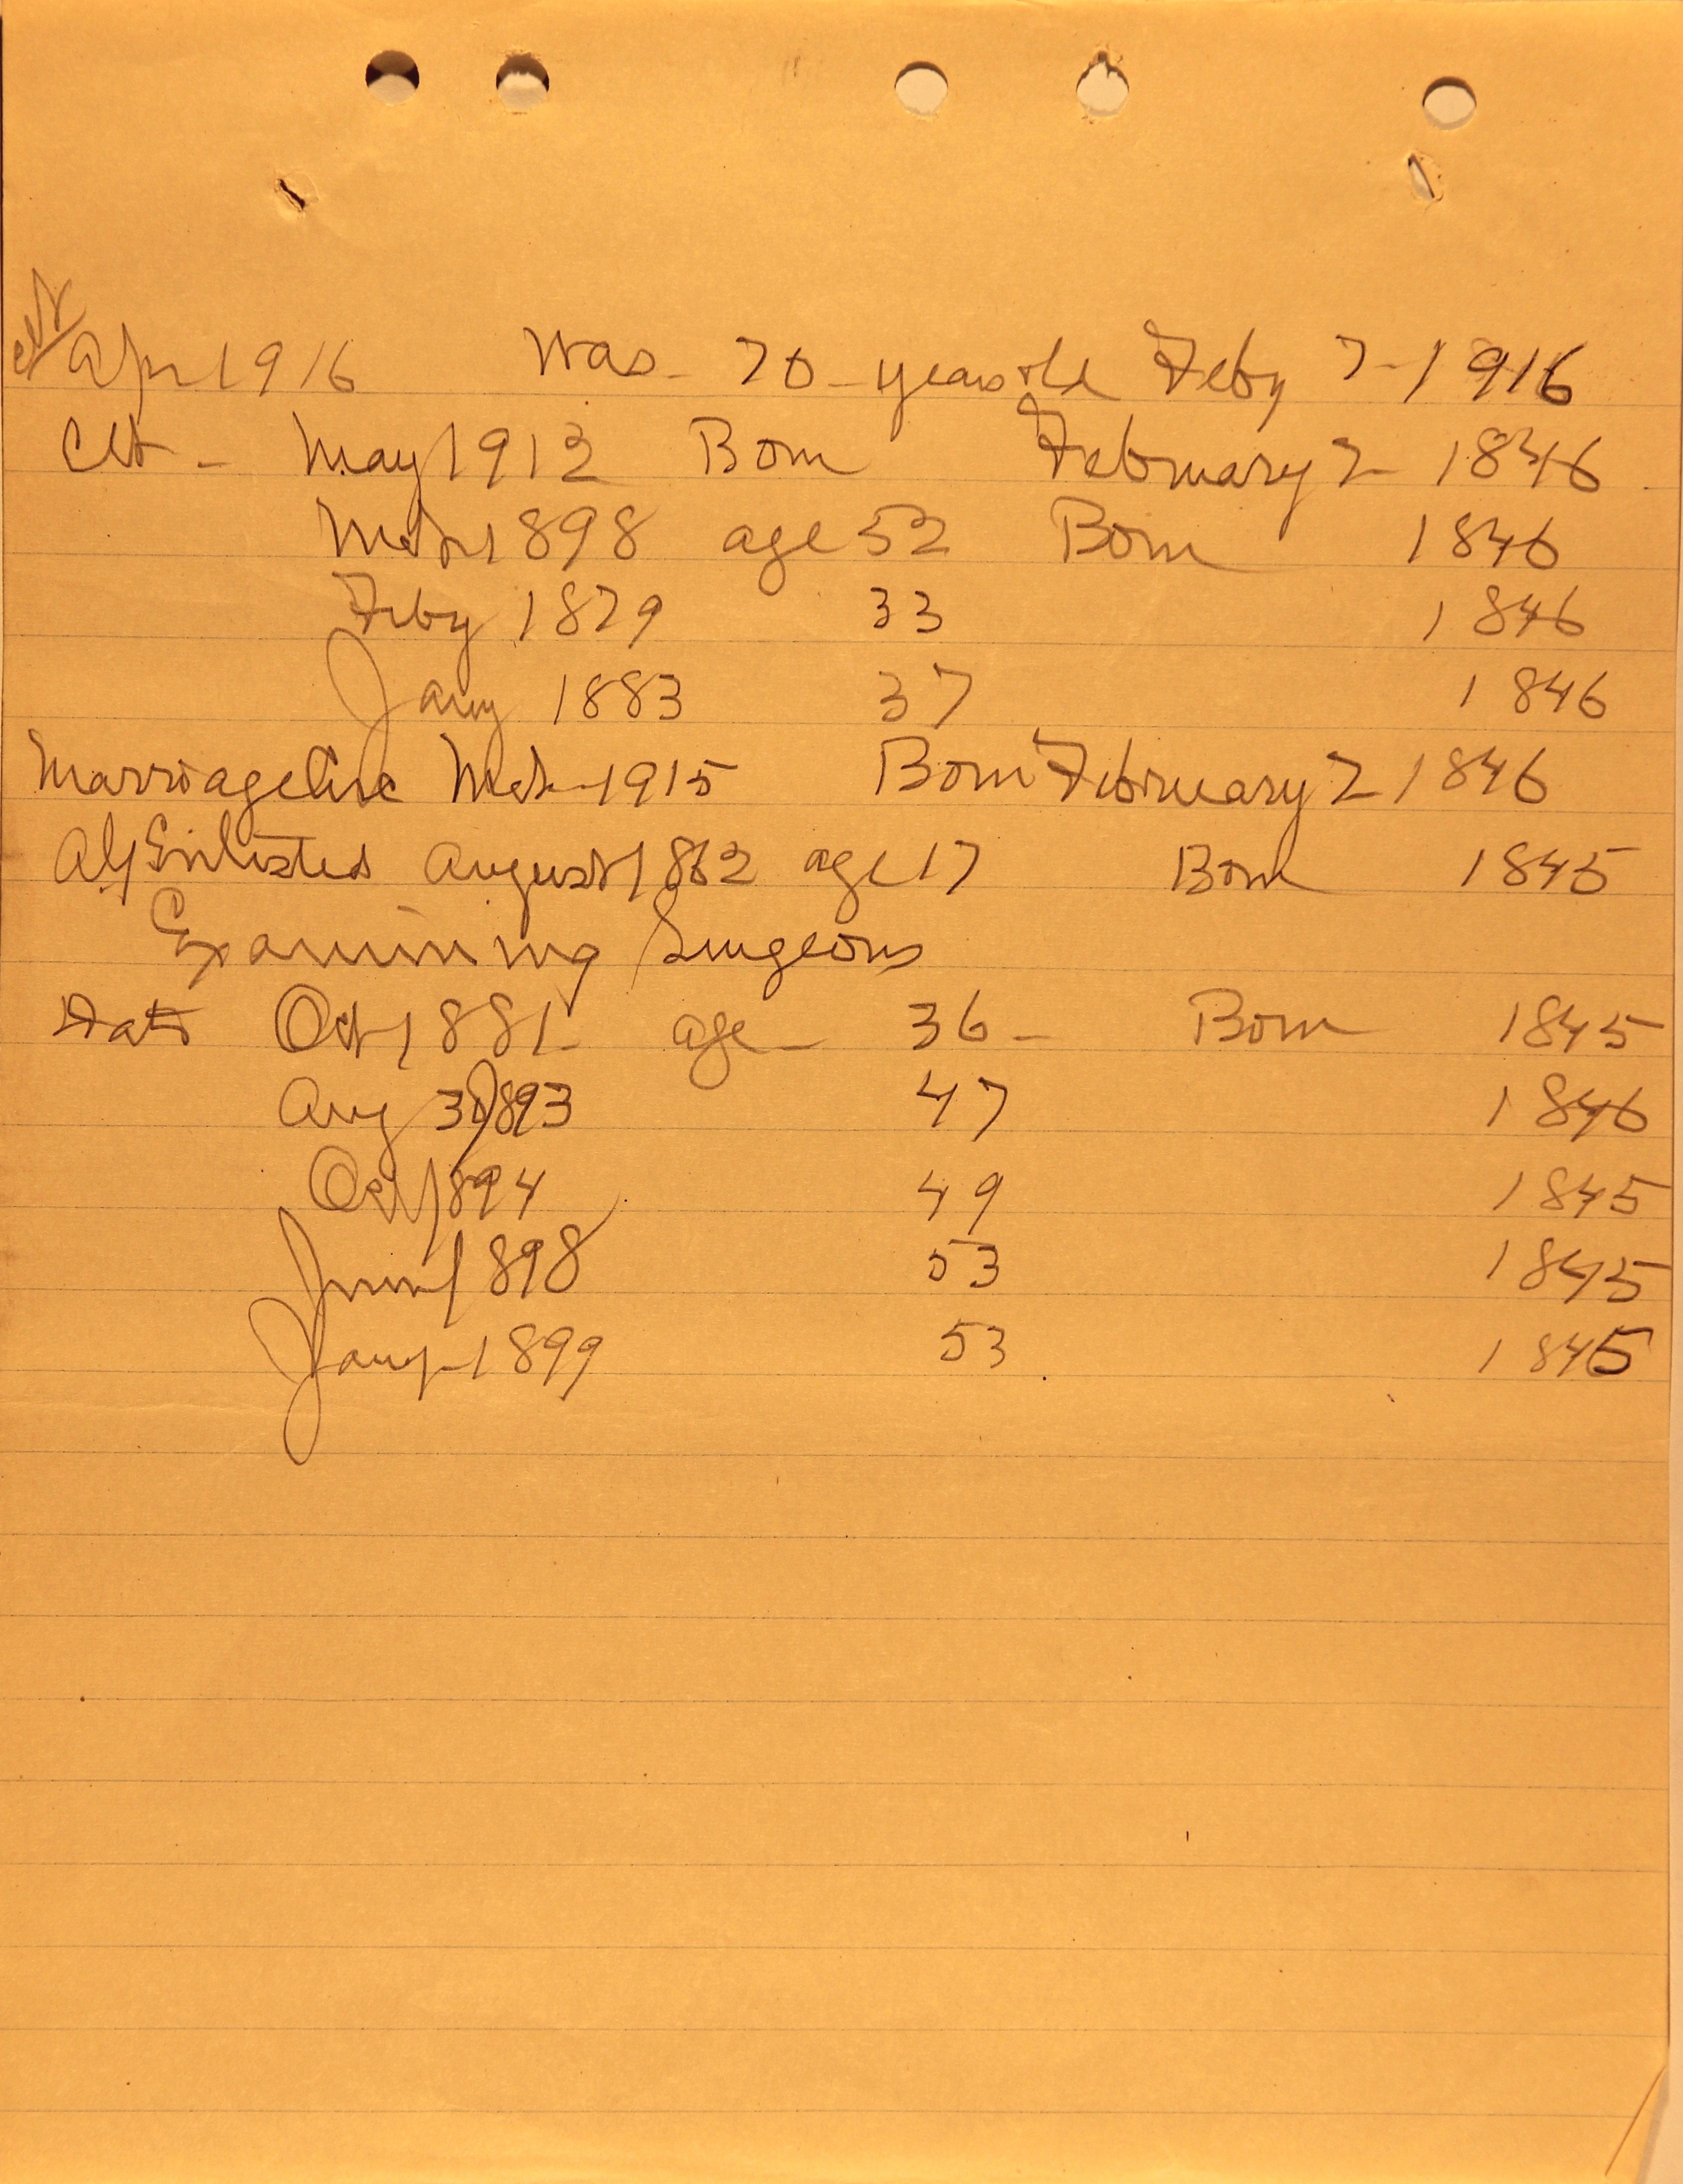 Clt
Apr 1916 Was - 70 - years old Feby 2 - 1916
Clt - May 1912 Born February 2 1846
Mch 1898 age 52 Born 1846
Feby 1879 33 1846
Jany 1883 37 1846
Marriage Circ Mch - 1915 Born February 2 1846
AG Enlisted August 1862 age 17 Born 1845
Examining Surgeons
Date Oct 1881 - age - 36 - Born 1845
Aug 30 1893 47 1846
Oct 1894 49 1845
June 1898 53 1845
Jany - 1899 53 1845